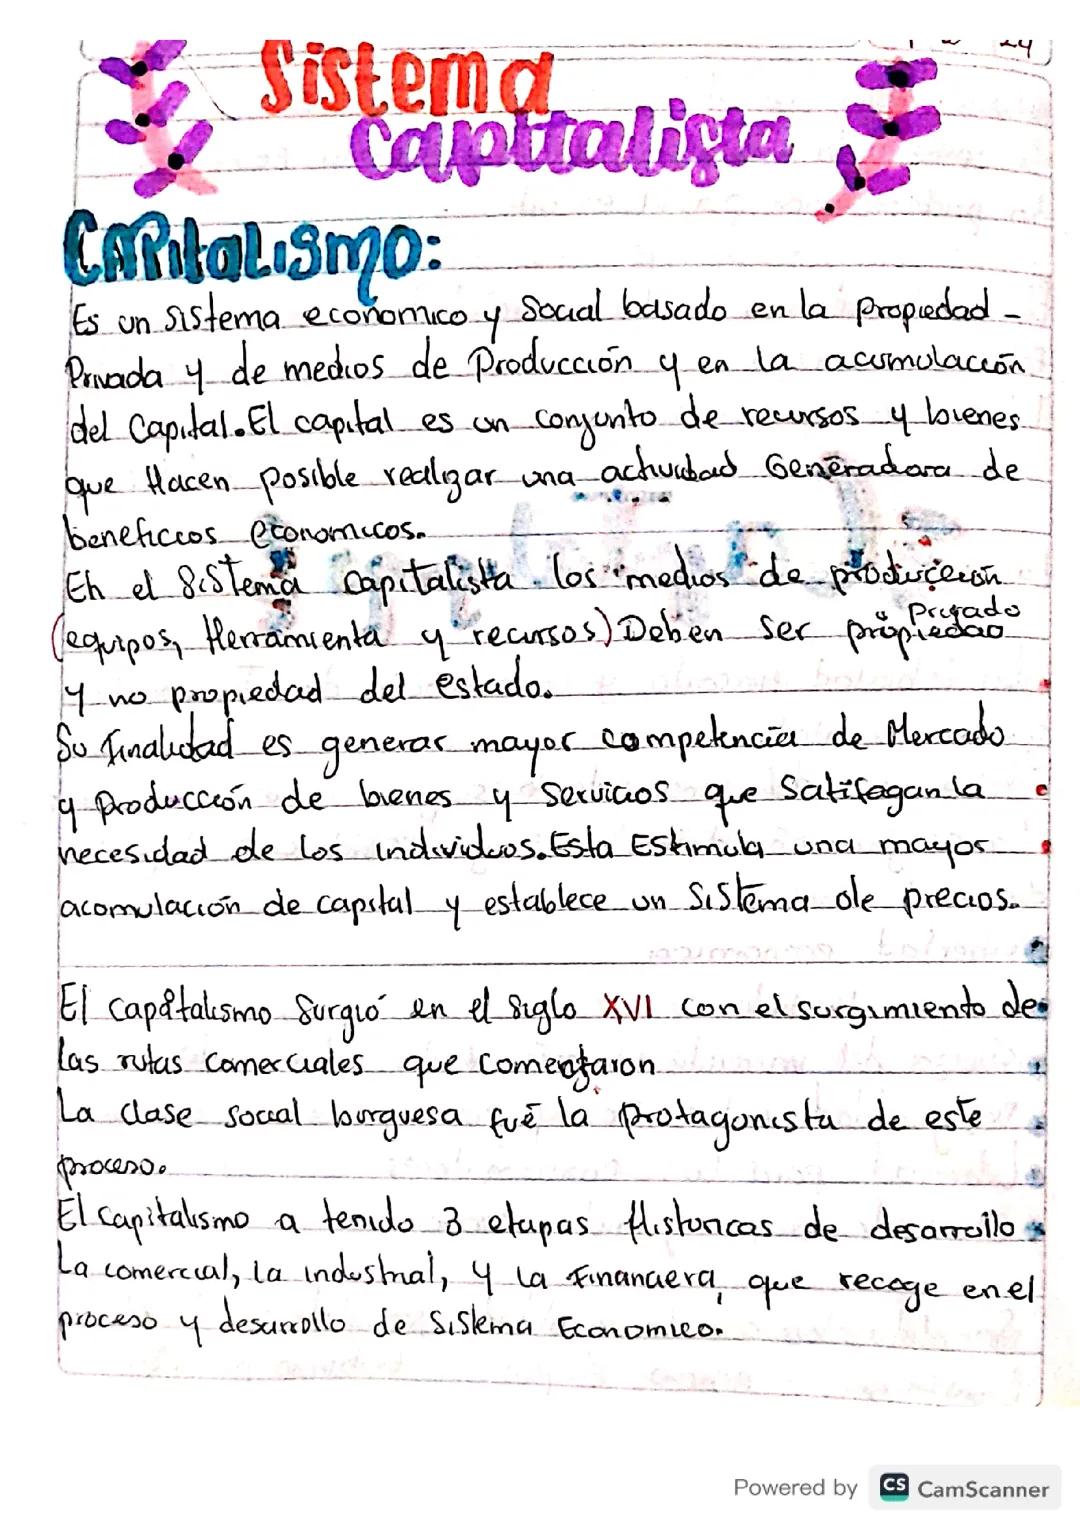 24
Sistema
Capitalista
Capitalismo:
Es un sistema economico y Social basado en la propiedad -
Privada y de medios de Producción y en la acumulación
del Capital. El capital es un conjunto de recursos y bienes
que Hacen posible realizar una actividad Generadora de
beneficios economicos.
En el Sistema Capitalista los medios de producción
(equipos, Herramienta y recursos) Deben ser propiedad Privado
y no propiedad del estado.
Su Finalidad es generar mayor competencia de Mercado
y Producción de bienes y Servicios que Satifagan la
necesidad de los individuos. Esta Estimula una mayor
acomulación de capital y establece un Sistema de precios.
El capitalismo Surgió en el Siglo XVI con el surgimiento de
las rutas comerciales que comenzaron
La clase social burguesa fué la protagonista de este
proceso.
El capitalismo a tenido 3 etapas Historicas de desarrollo
La comercial, la industrial, y la Financiera, que recoge en el
proceso y desarrollo de Sistema Economico.
Powered by CS CamScanner